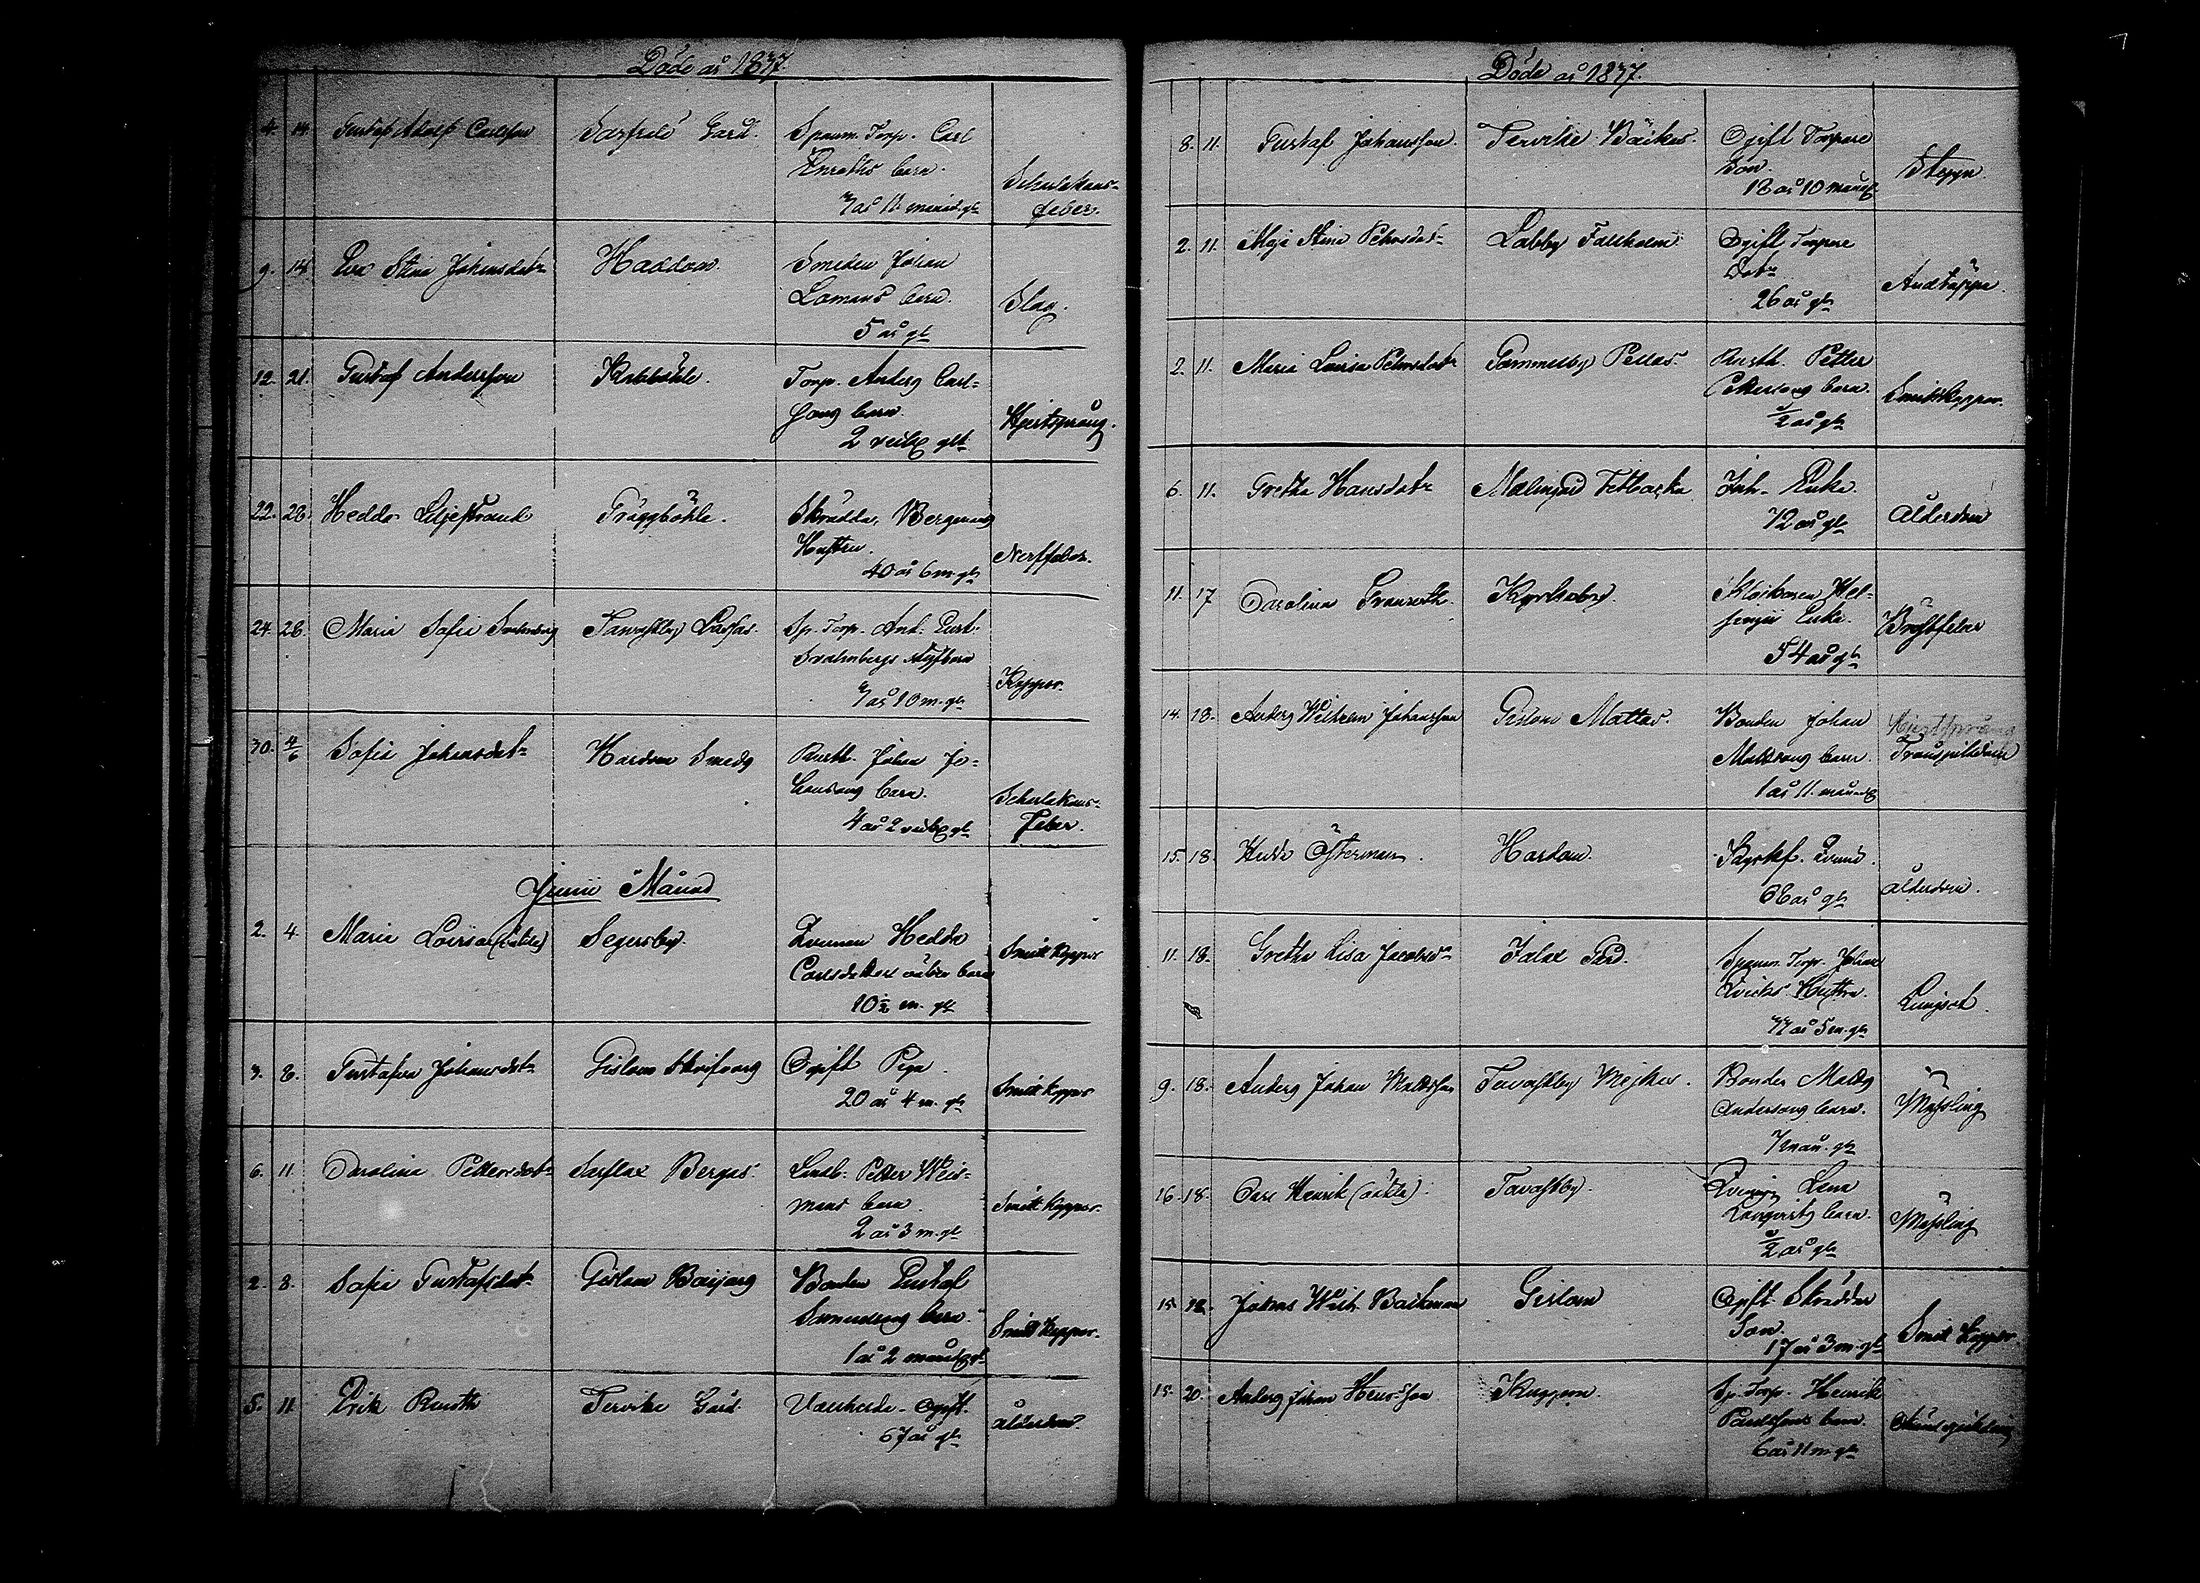 Döde år 1837.
4. 14 Gustaf Adolf Carlsson Gård. Spanm. Torp. Carl
barn.
7 år 11 månad. gl.
Scharlakans-
feber.
9. 14 Eva Stina Johansdotr Haddom. Smeden Johan
Lomans barn.
5 år gl.
Slag.
12. 21. Gustaf Andersson Krabböhle. Torp. Anders Carl-
sons barn.
2 veck. glt.
Hjertsprång.
22. 28. Hedda Liljestrand Träggböhle. Skräddar Bergmans
Hustru.
40 år 6 m. gl.
Nerffeber.
24. 28 Maria Sofia Tavastby Lassas. Sp. Torp. And. Gust.
barn
7 år 10 m. gl.
Koppor.
30. 4/6 Sofia Johansdotr Hardom Smeds Rusth. Johan Jo-
hansons barn.
4 år 2 veck. gl.
Scharlakans-
feber.
Junii Månad
2. 4. Maria Lovisa (oäkta) Segersby. Qvinnan Hedda
Carlsdotters oäkta barn
10½ m. gl.
Smitt koppor
3. 8. Gustafva Johansdotr Gislom Skrifvars Ogift Piga.
20 år 4 m. gl.
Smitt koppor
6. 11 Carolina Pettersdotr Sarflax Bergas. Landb. Petter Weid-
mans barn.
2 år 3 m. gl.
Smitt koppor.
2. 8. Sofia Gustafsdotr Gislom Bonden Gustaf
barn.
1 år 2 månad. gl.
Smitt koppor.
5. 11 Erik Rusth Tervike Gård Ogift.
67 år gl.
ålderdom.
Döde år 1837.
8. 11. Gustaf Johansson. Tervike Bäckas. Ogift Torpare
Son.
18 år 10 månad
2. 11. Maja Stina Petersdotr Labby Falkholm Ogift Torpare
Dotr
26 år gl.
Andtäppa.
2. 11. Maria Lovisa Petersdotr Gammelby Pellas. Rusth. Petter
Pettersons barn.
½ år gl.
Smittkoppor.
6. 11. Gretha Hansdotr Malmgård Inh. Enka.
72 år gl.
Ålderdom
11. 17 Carolina Granroth. Kyrkoby. Klockaren Hel-
Enka.
54 år gl.
Bröstfeber
14. 18. Anders Wilhelm Johansson Gislom Mattas. Bonden Johan
Mattsons barn.
1 år 11. månad
Hjertsprång
15. 18. Hedda Österman. Hardom.
68 år gl.
ålderdom.
11. 18. Gretha Lisa Jacobsd. Gård. Spanm. Torp. Johan
Qvicks Hustru.
77 år 5 m. gl.
Lungsot.
9. 18. Anders Johan Mattsson Tavastby Mejkas. Bonden Matts
Andersons barn.
7 mån. gl.
Mässling
16. 18. Carl Henrik (oäkta). Tavastby. Qvinn. Lena
Lönqvists barn.
½ år gl.
Mässling
15. 18. Johan Wilh. Backman Gislom Ogift Skräddar
Son.
17 år 3 m. gl.
Smitt koppor
15. 20. Anders Johan Henrsson Kuggom. Sp. Torp. Henrik
barn.
6 år 11 m. gl.